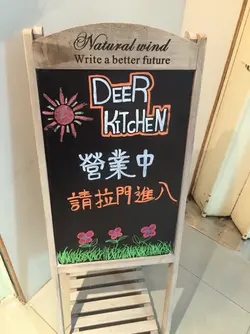 Natural wind
Write a better future
DEER
KITCHEN
營業中
請拉門進入